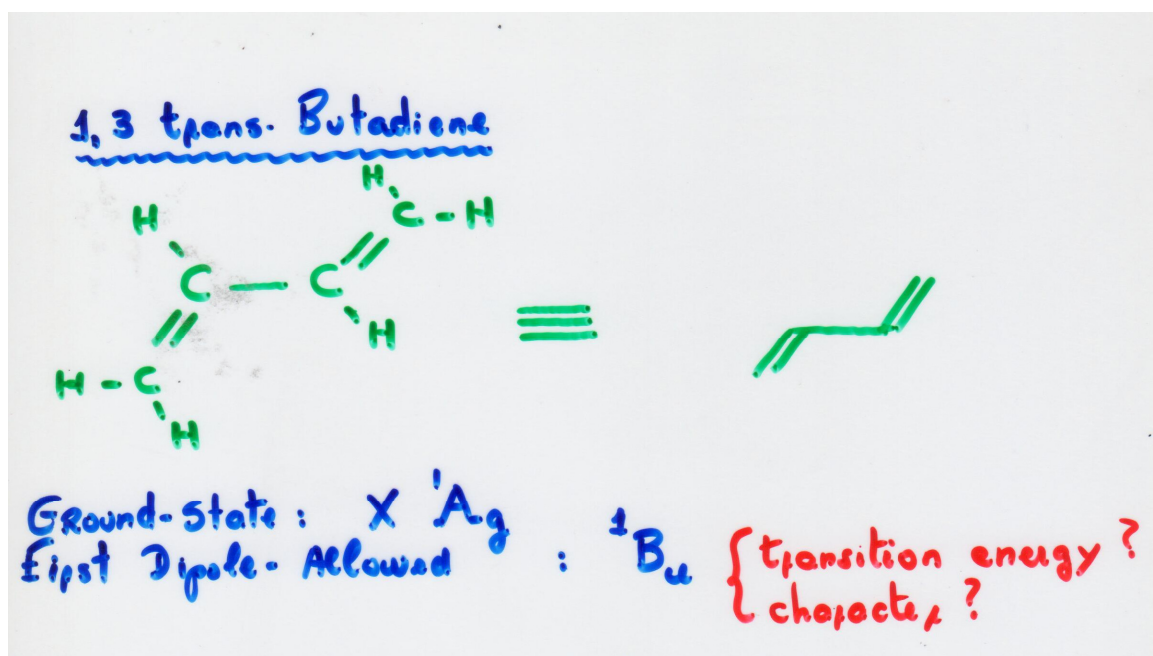 1,3 trans- Butadiene
H
H
C - H
C
C
H
H - C
H
Ground-State: X ¹Ag
First Dipole-Allowed : ¹Bu { transition energy ?
character ?